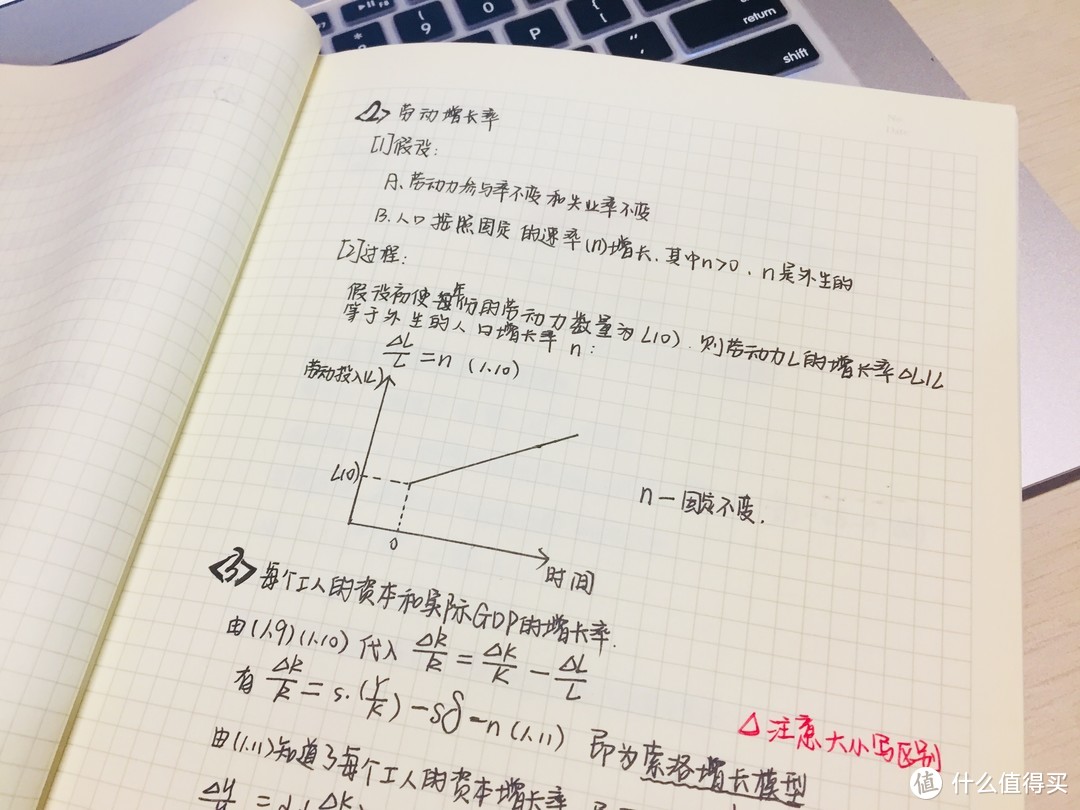 *
(
9
)
0
P
{
[
"
'
:
;
return
shift
<2> 劳动增长率
[1]假设:
A、劳动力参与率不变和失业率不变
B、人口按照固定的速率(n)增长,其中n>0、n是外生的
[2]过程:
假设初使年份的劳动力数量为L(0),则劳动力L的增长率△L/L
等于外生的人口增长率n:
△L/L = n (1.10)
劳动投入(L)
L(0)
0
时间
n一固定不变.
<3> 每个工人的资本和实际GDP的增长率.
由(1.9)(1.10)代入 △k/k = △K/K - △L/L
有 △k/k = s·(Y/K) - sδ - n (1.11) 即为索洛增长模型
△注意大小写区别
由(1.11)知道了每个工人的资本增长率
值 什么值得买